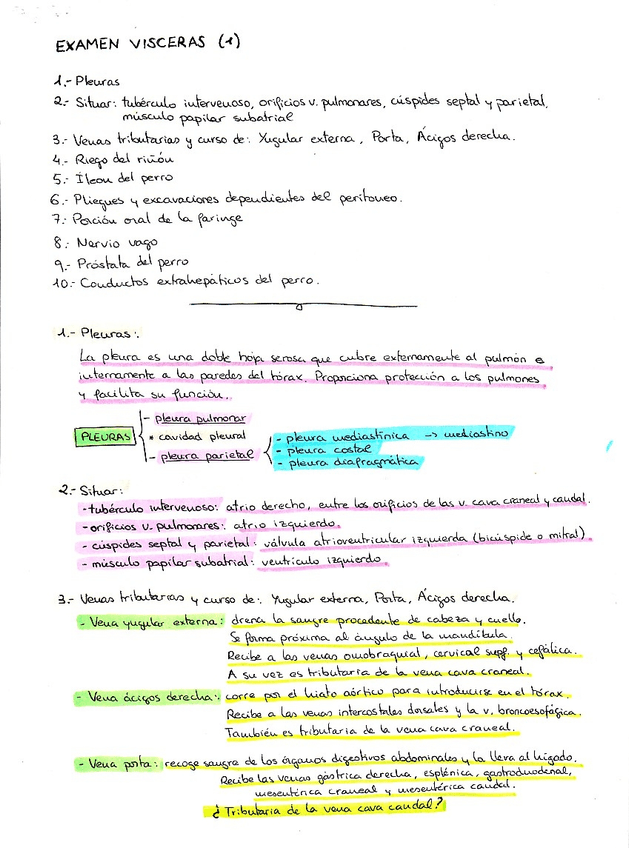 EXAMEN VISCERAS (1)
1.- Pleuras
2.- Situar: tubérculo intervenoso, orificios v. pulmonares, cúspides septal y parietal,
músculo papilar subatrial
3.- Venas tributarias y curso de: Yugular externa, Porta, Ácigos derecha.
4.- Riego del riñón
5.- Íleon del perro
6.- Pliegues y excavaciones dependientes del peritoneo.
7.- Porción oral de la faringe
8.- Nervio vago
9.- Próstata del perro
10.- Conductos extrahepáticos del perro.
1.- Pleuras:
La pleura es una doble hoja serosa que cubre externamente al pulmón e
internamente a las paredes del tórax. Proporciona protección a los pulmones
y facilita su función.
PLEURAS
- pleura pulmonar
* cavidad pleural
- pleura parietal
- pleura mediastínica → mediastino
- pleura costal
- pleura diafragmática
2.- Situar:
- tubérculo intervenoso: atrio derecho, entre los orificios de las v. cava craneal y caudal.
- orificios v. pulmonares: atrio izquierdo.
- cúspides septal y parietal: válvula atrioventricular izquierda (bicúspide o mitral)
- músculo papilar subatrial: ventrículo izquierdo
3.- Venas tributarias y curso de: Yugular externa, Porta, Ácigos derecha.
- Vena yugular externa: drena la sangre procedente de cabeza y cuello.
Se forma próxima al ángulo de la mandíbula.
Recibe a las venas omobraquial, cervical supf. y cefálica.
A su vez es tributaria de la vena cava craneal.
- Vena ácigos derecha: corre por el hiato aórtico para introducirse en el tórax.
Recibe a las venas intercostales dorsales y la v. broncoesofágica.
También es tributaria de la vena cava craneal.
- Vena porta: recoge sangre de los órganos digestivos abdominales y la lleva al hígado.
Recibe las venas gástrica derecha, esplénica, gastroduodenal,
mesentérica craneal y mesentérica caudal.
¿Tributaria de la vena cava caudal?